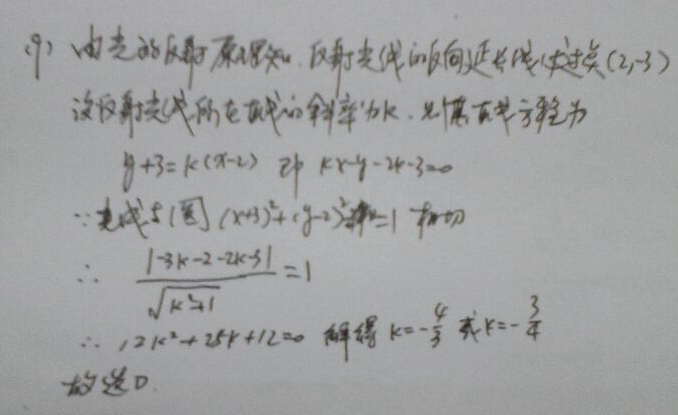 (9) 由光的反射原理知，反射光线的反向延长线必过点(2,-3)
设反射光线所在直线的斜率为k，则其直线方程为
y+3=k(x-2) 即 kx-y-2k-3=0
∵光线与圆 (x+3)²+(y-2)²=1 相切
∴ |-3k-2-2k-3| / √(k²+1) = 1
∴ 12k²+25k+12=0 解得 k=-4/3 或 k=-3/4
故选D.